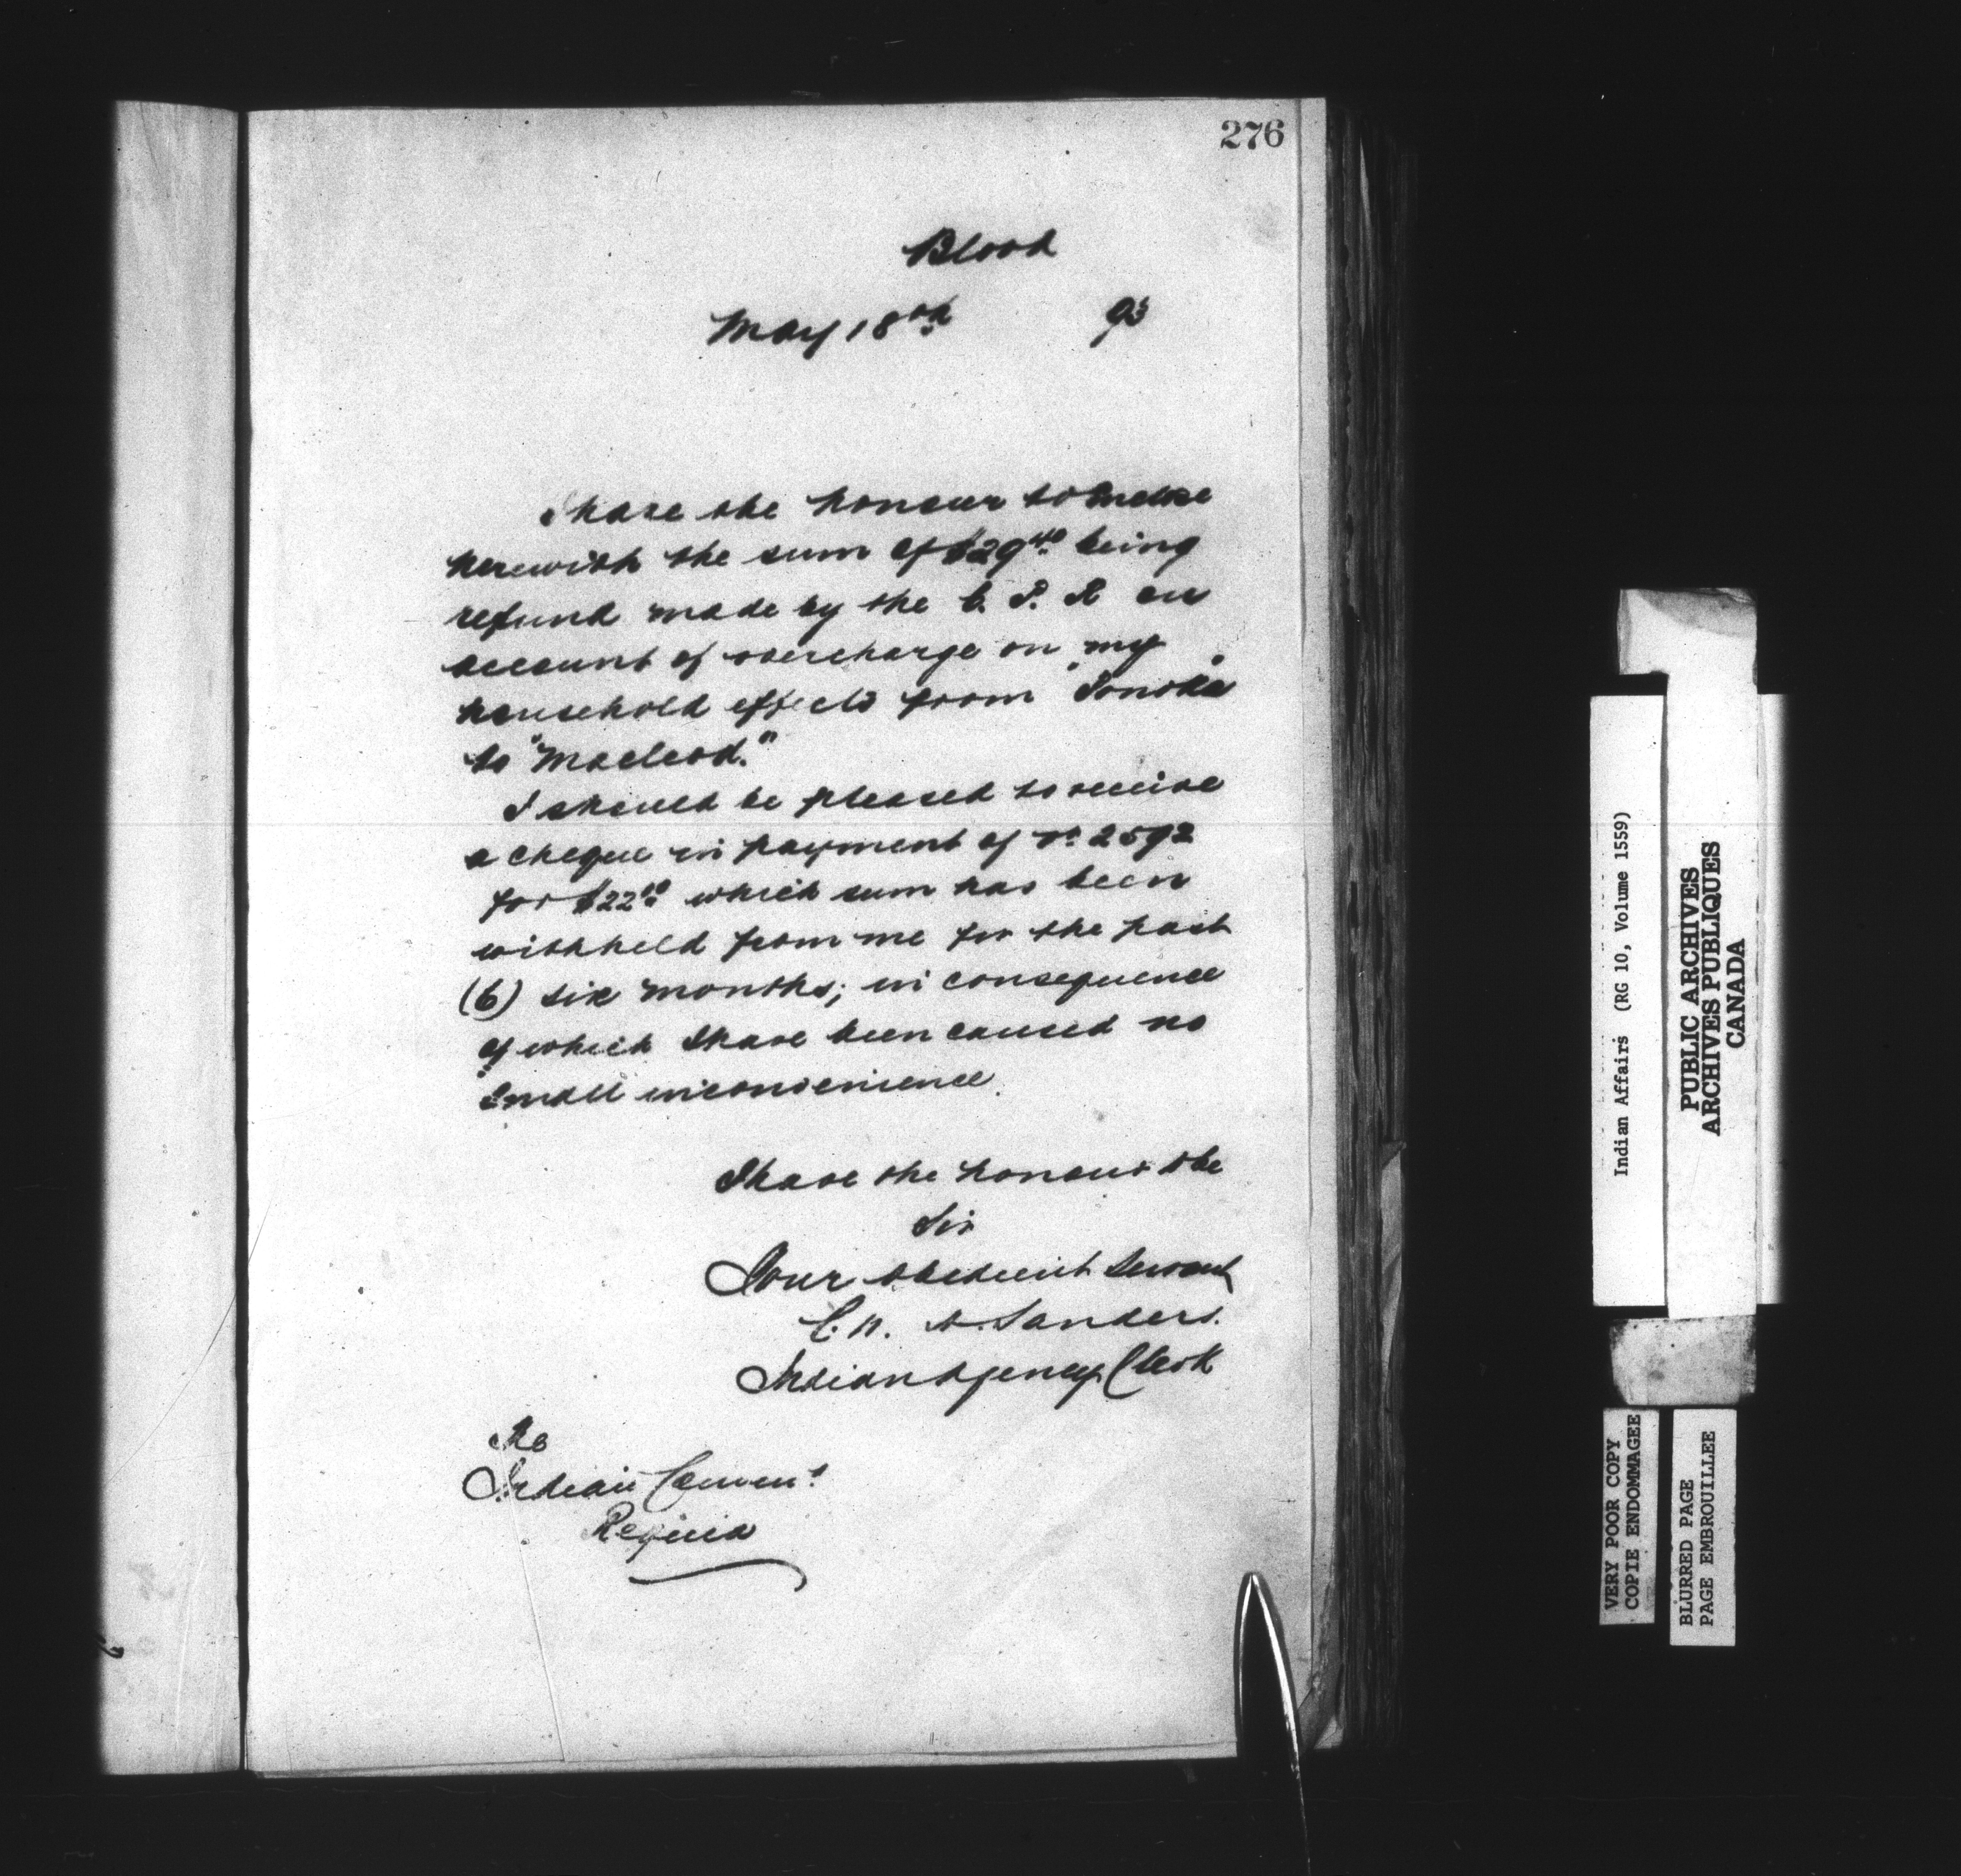 276
Blood
May 18th 93
I have the honour to enclose
herewith the sum of $29.40 being
refund made by the C. P. R on
account of overcharge on my
household effects from "Ponoka"
to "Macleod."
I should be pleased to receive
a cheque in payment of No 2592
for $22.00 which sum has been
withheld from me for the past
(6) six months; in consequence
of which I have been caused no
small inconvenience.
I have the honour to be
Sir
Your obedient Servant
C. n. A. Sanders.
Indian Agency Clerk
The
Indian Commr
Regina
Indian Affairs (RG 10, Volume 1559)
PUBLIC ARCHIVES
ARCHIVES PUBLIQUES
CANADA
VERY POOR COPY
COPIE ENDOMMAGEE
BLURRED PAGE
PAGE EMBROUILLEE